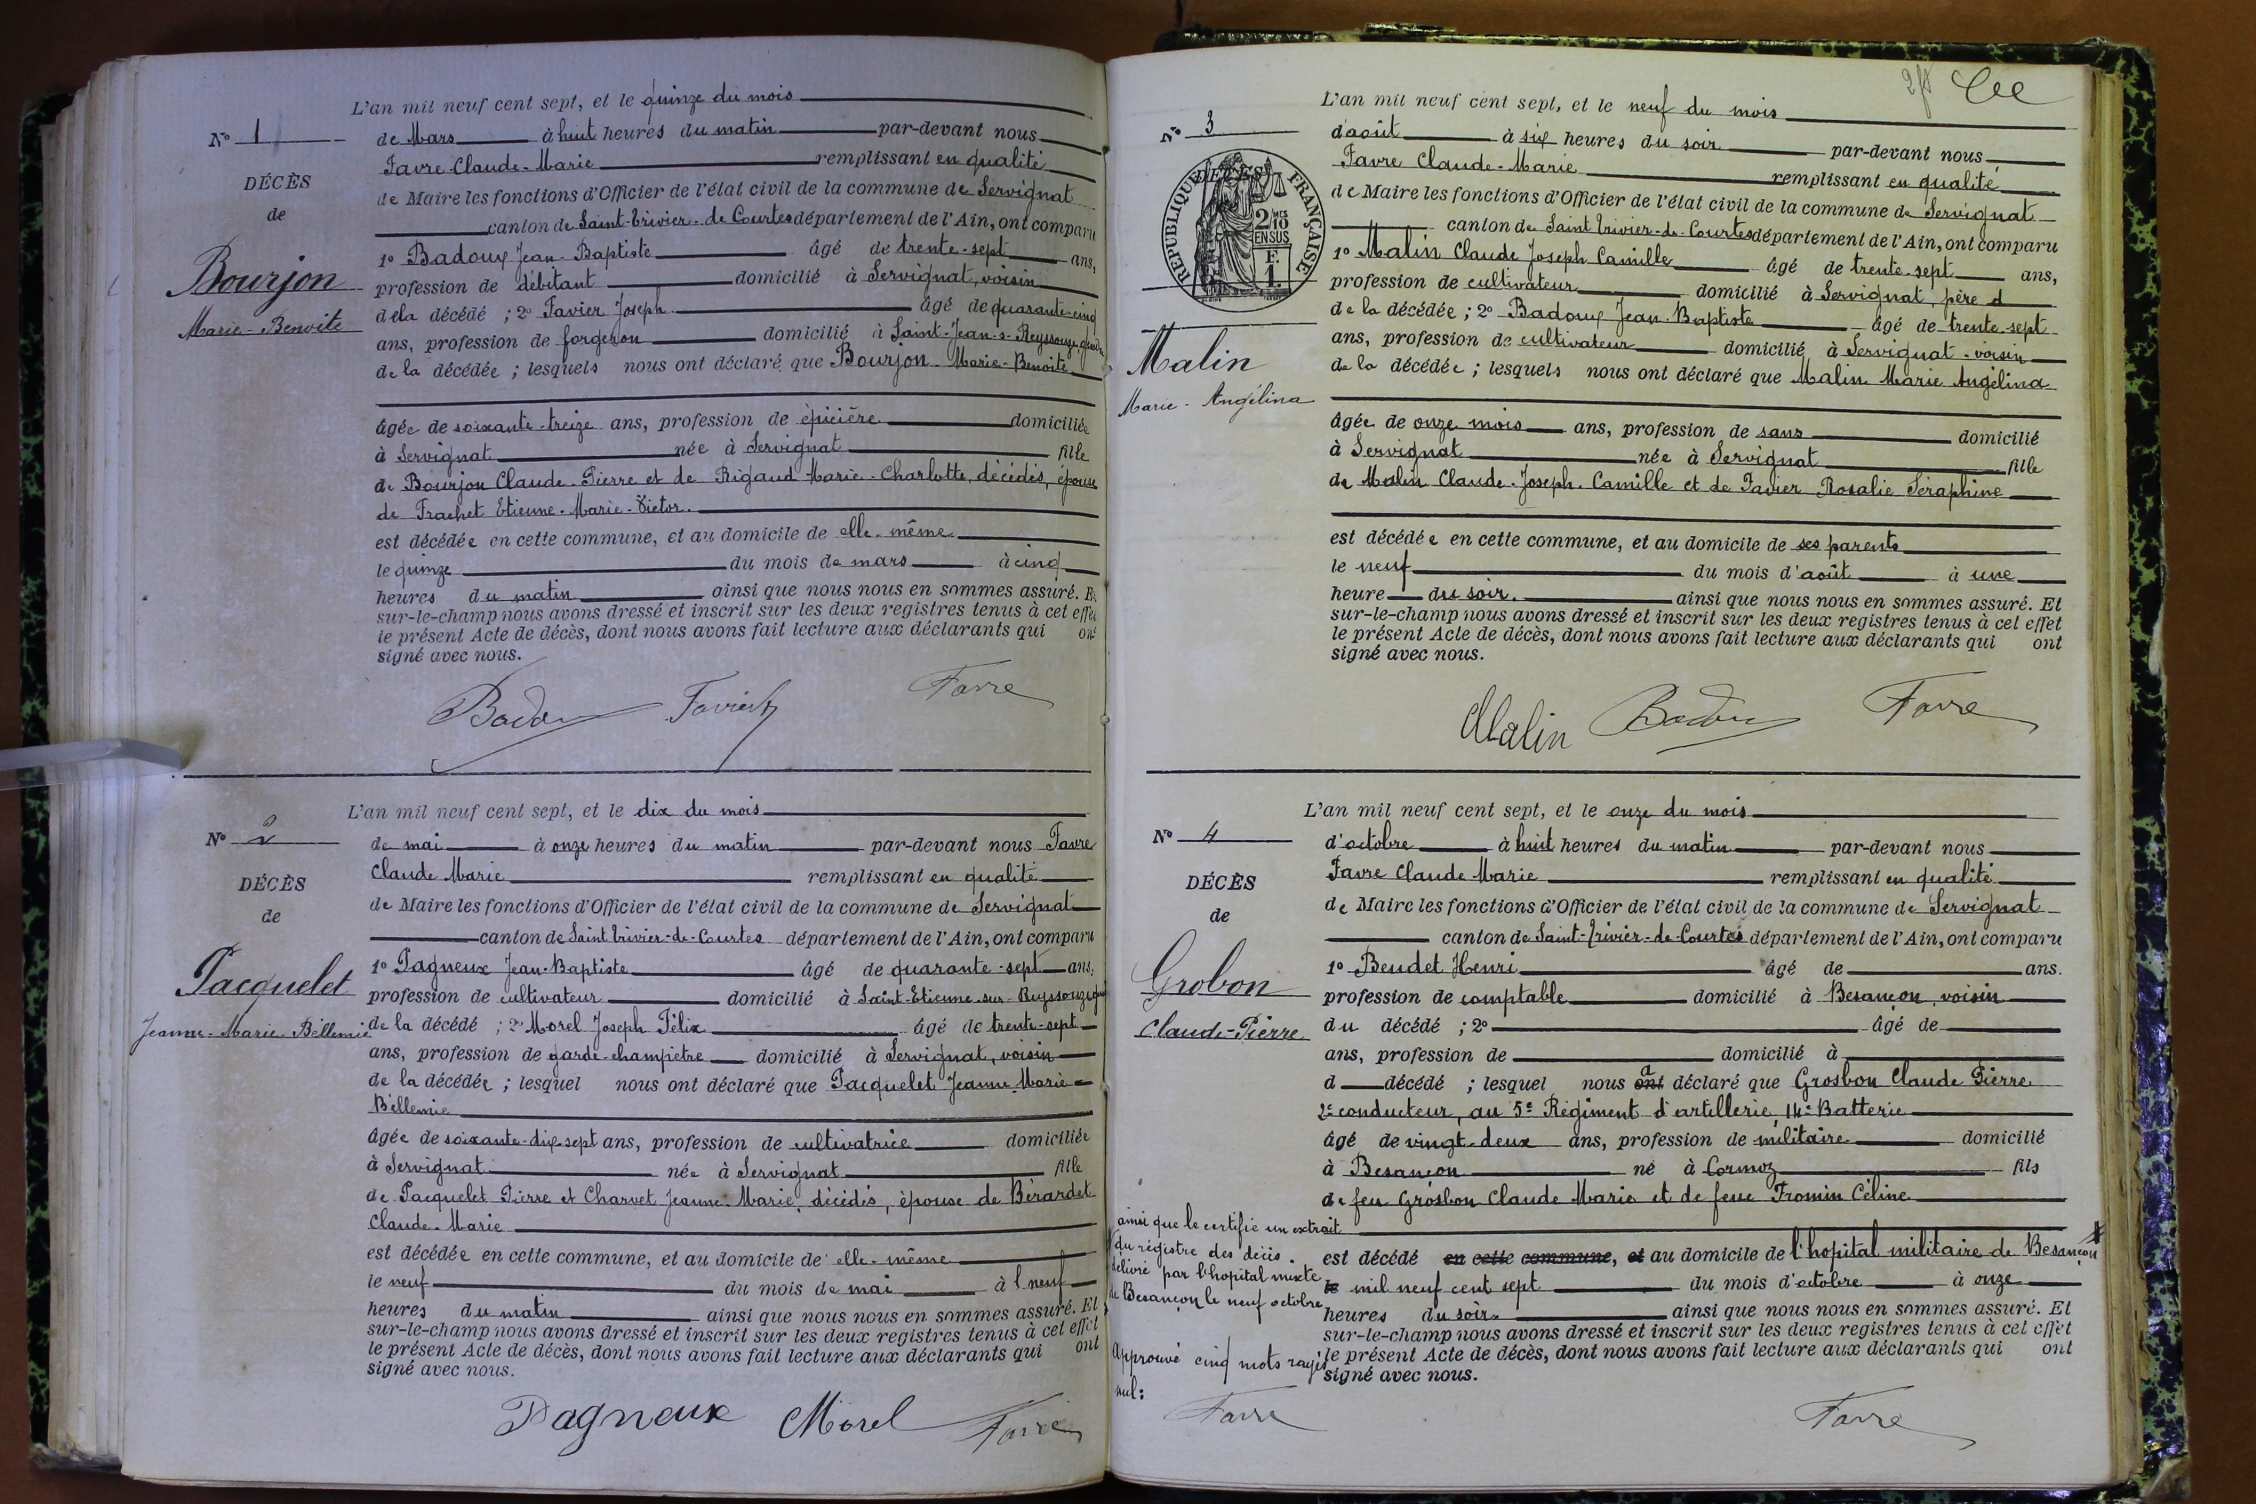 L'an mil neuf cent sept, et le quinze du mois
N° 1
de Mars à huit heures du matin par-devant nous
Favre Claude-Marie remplissant en qualité
DÉCÈS
de Maire les fonctions d'Officier de l'état civil de la commune de Servignat
de
canton de Saint-Trivier-de-Courtes département de l'Ain, ont comparu
1° Badoux Jean-Baptiste âgé de trente-sept ans,
Bourjon
profession de débitant domicilié à Servignat, voisin
Marie-Benoite
de la décédé ; 2° Favier Joseph âgé de quarante-cinq
ans, profession de forgeron domicilié à Saint-Jean-s-Reyssouze,
de la décédée ; lesquels nous ont déclaré que Bourjon Marie-Benoite
âgée de soixante-treize ans, profession de épicière domiciliée
à Servignat née à Servignat fille
de Bourjon Claude-Pierre et de Rigaud Marie-Charlotte, décédés, épouse
de Frachet Etienne-Marie-Victor.
est décédée en cette commune, et au domicile de elle-même
le quinze du mois de mars à cinq
heures du matin ainsi que nous nous en sommes assuré. Et
sur-le-champ nous avons dressé et inscrit sur les deux registres tenus à cet effet
le présent Acte de décès, dont nous avons fait lecture aux déclarants qui ont
signé avec nous.
Badoux Favier Favre
L'an mil neuf cent sept, et le dix du mois
N° 2
de mai à onze heures du matin par-devant nous Favre
Claude Marie remplissant en qualité
DÉCÈS
de Maire les fonctions d'Officier de l'état civil de la commune de Servignat
de
canton de Saint Trivier-de-Courtes département de l'Ain, ont comparu
1° Pagneux Jean-Baptiste âgé de quarante-sept ans,
Pacquelet
profession de cultivateur domicilié à Saint-Etienne-sur-Reyssouze,
Jeanne-Marie Bellemie
de la décédé ; 2° Morel Joseph Félix âgé de trente-sept
ans, profession de garde-champêtre domicilié à Servignat, voisin
de la décédée ; lesquel nous ont déclaré que Pacquelet Jeanne Marie
Bellemie
âgée de soixante-dix-sept ans, profession de cultivatrice domiciliée
à Servignat née à Servignat fille
de Pacquelet Pierre et Charvet Jeanne-Marie, décédés, épouse de Bérardet
Claude-Marie
est décédée en cette commune, et au domicile de elle-même
le neuf du mois de mai à neuf
heures du matin ainsi que nous nous en sommes assuré. Et
sur-le-champ nous avons dressé et inscrit sur les deux registres tenus à cet effet
le présent Acte de décès, dont nous avons fait lecture aux déclarants qui ont
signé avec nous.
Pagneux Morel Favre
L'an mil neuf cent sept, et le neuf du mois
N° 3
d'août à six heures du soir par-devant nous
Favre Claude-Marie remplissant en qualité
RÉPUBLIQUE FRANÇAISE
2/10 EN SUS
F. 1.
de Maire les fonctions d'Officier de l'état civil de la commune de Servignat
canton de Saint Trivier-de-Courtes département de l'Ain, ont comparu
1° Malin Claude Joseph Camille âgé de trente-sept ans,
profession de cultivateur domicilié à Servignat, père d
de la décédée ; 2° Badoux Jean-Baptiste âgé de trente-sept
Malin
ans, profession de cultivateur domicilié à Servignat-voisin
de la décédée ; lesquels nous ont déclaré que Malin Marie Angélina
Marie-Angélina
âgée de onze mois ans, profession de sans domicilié
à Servignat née à Servignat fille
de Malin Claude-Joseph-Camille et de Favier Rosalie Séraphine
est décédée en cette commune, et au domicile de ses parents
le neuf du mois d'août à une
heure du soir. ainsi que nous nous en sommes assuré. Et
sur-le-champ nous avons dressé et inscrit sur les deux registres tenus à cet effet
le présent Acte de décès, dont nous avons fait lecture aux déclarants qui ont
signé avec nous.
Malin Badoux Favre
L'an mil neuf cent sept, et le onze du mois
N° 4
d'octobre à huit heures du matin par-devant nous
Favre Claude Marie remplissant en qualité
DÉCÈS
de Maire les fonctions d'Officier de l'état civil de la commune de Servignat
de
canton de Saint-Trivier-de-Courtes département de l'Ain, ont comparu
1° Beudet Henri âgé de ans.
Grobon
profession de comptable domicilié à Besançon, voisin
Claude-Pierre
du décédé ; 2° âgé de
ans, profession de domicilié à
d décédé ; lesquel nous ont a déclaré que Grosbon Claude Pierre
2e conducteur, au 5e Régiment d'artillerie, 14e Batterie
âgé de vingt-deux ans, profession de militaire domicilié
à Besançon né à Cormoz fils
de feu Grosbon Claude Marie et de feue Fromin Céline
ainsi que le certifie un extrait
du régistre des décès
délivré par l'hopital mixte
de Besançon le neuf octobre
est décédé en cette commune, et au domicile de l'hopital militaire de Besançon
le mil neuf cent sept du mois d'octobre à onze
heures du soir ainsi que nous nous en sommes assuré. Et
sur-le-champ nous avons dressé et inscrit sur les deux registres tenus à cet effet
le présent Acte de décès, dont nous avons fait lecture aux déclarants qui ont
signé avec nous.
approuvé cinq mots rayés
nul:
Favre Favre